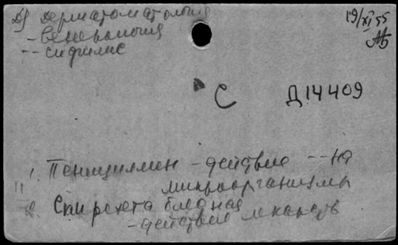 19/XI 55
Д) Дерматология
- Венерология
-- сифилис
С Д14409
1. Пенициллин - действие -- на
микроорганизмы
11
2. Спирохета бледная
- действие лекарств